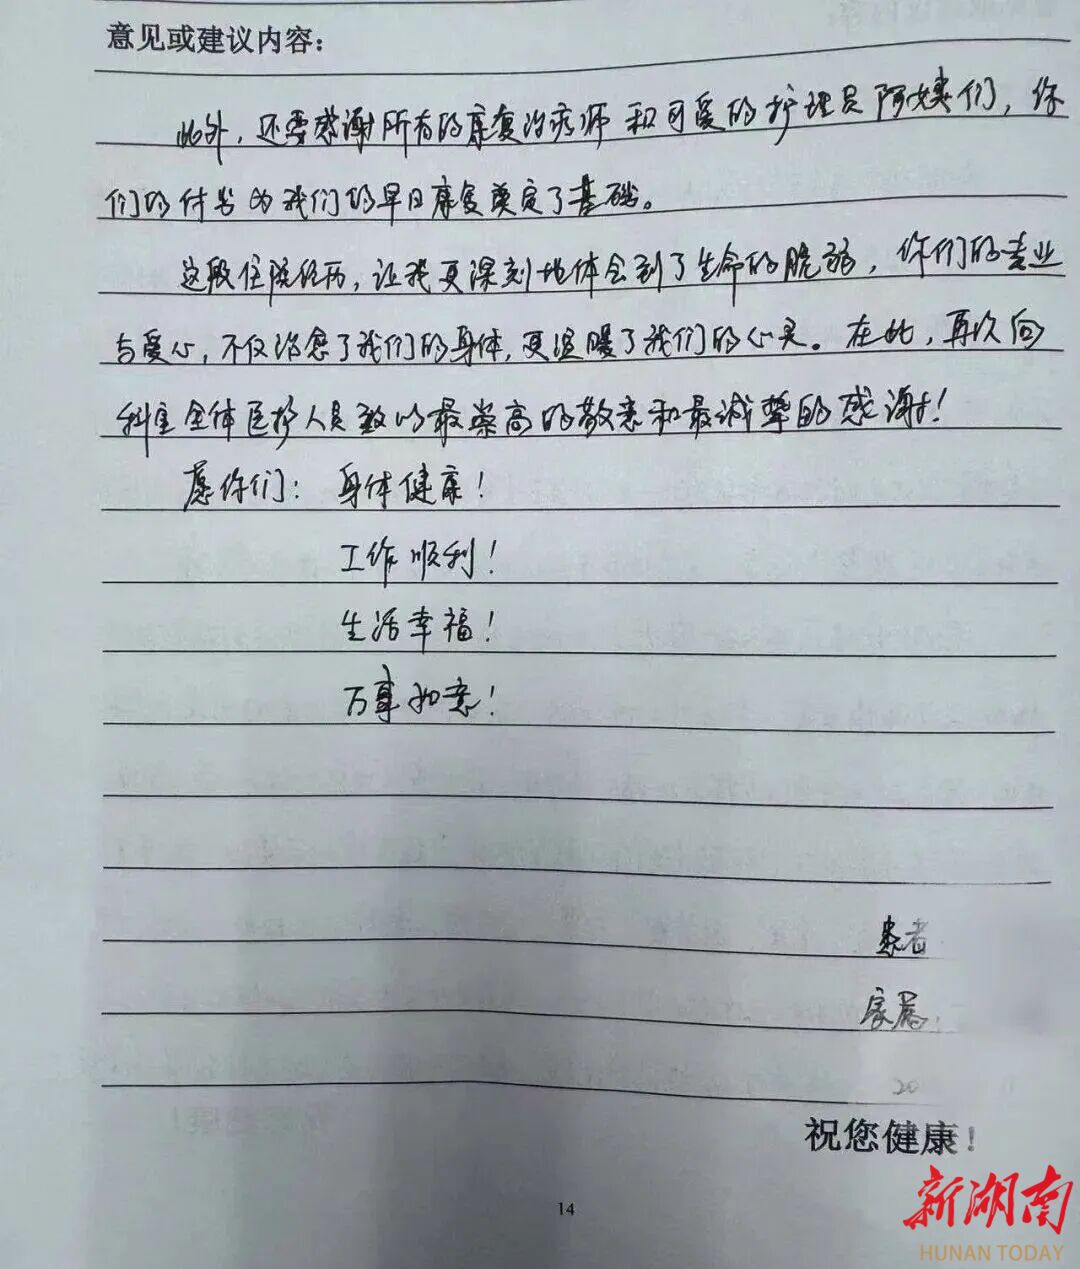 意见或建议内容：
此外，还要感谢所有的康复治疗师和可爱的护理员阿姨们，你
们的付出为我们的早日康复奠定了基础。
这段住院经历，让我更深刻地体会到了生命的脆弱，你们的专业
与爱心，不仅治愈了我们的身体，更温暖了我们的心灵。在此，再次向
科室全体医护人员致以最崇高的敬意和最诚挚的感谢！
愿你们：身体健康！
工作顺利！
生活幸福！
万事如意！
患者
家属：
20
祝您健康！
14
新湖南
HUNAN TODAY